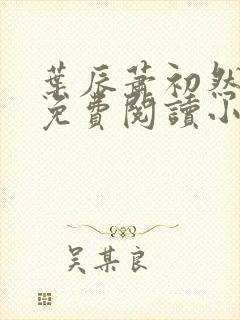 葉辰蕭初然
免費閱讀小
吳某良